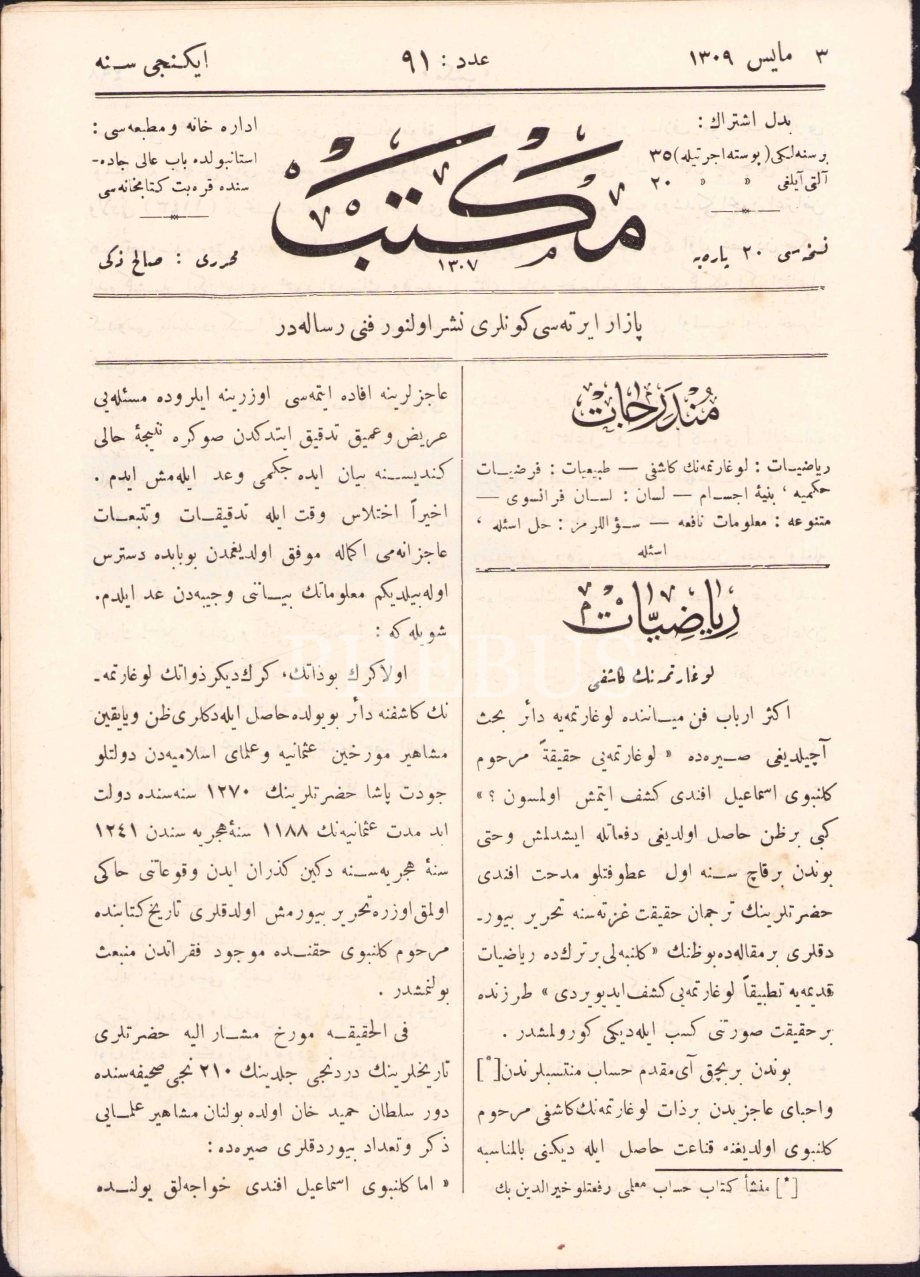 ٣ مايس ١٣٠٩
عدد : ٩١
ايكنجى سنه
بدل اشتراك :
برسنه‌لكى (پوسته اجرتيله) ٣٥
آلتى آيلغى » » ٢٠
نسخه‌سى ٢٠ پاره‌يه
مكتب
١٣٠٧
اداره خانه و مطبعه‌سى :
استانبولده باب عالى جاده-
سنده قره‌بت كتابخانه‌سى
محررى : صالح ذكى
پازار ايرته‌سى كونلرى نشر اولنور فنى رساله‌در
مُنْدَرِجَات
رياضيات : لوغارتمه‌نك كاشفى — طبيعيات : فرضيات
حكميه ، بنيۀ اجسام — لسان : لسان فرانسوى —
متنوعه : معلومات نافعه — سؤاللرمز : حل اسئله ،
اسئله
رِيَاضِيَّات
لوغارتمه‌نك كاشفى
اكثر ارباب فن ميانننده لوغارتمه‌يه دائر بحث
آچيلديغى صيره‌ده « لوغارتمه‌يى حقيقةً مرحوم
كلنبوى اسماعيل افندى كشف ايتمش اولمسون ؟ »
كبى برظن حاصل اولديغى دفعاتله ايشدلمش وحتى
بوندن برقاچ سنه اول عطوفتلو مدحت افندى
حضرتلرينك ترجمان حقيقت غزته‌سنه تحرير بيور-
دقلرى برمقاله‌ده‌بوظنك « كلنبه‌لى برترك‌ده رياضيات
قديمه‌يه تطبيقاً لوغارتمه‌يى كشف ايديويردى » طرزنده
برحقيقت صورتنى كسب ايله‌ديكى كورولمشدر .
بوندن بربچق آى‌مقدم حساب منتسبلرندن[*]
واحباى عاجزيدن برذات لوغارتمه‌نك‌كاشفى مرحوم
كلنبوى اولديغنه قناعت حاصل ايله ديكنى بالمناسبه
[*] منشأ كتاب حساب معلمى رفعتلو خيرالدين بك
عاجزلرينه افاده ايتمه‌سى اوزرينه ايلروده مسئله‌يى
عريض وعميق تدقيق ايتدكدن صوكره نتيجۀ حالى
كنديسنه بيان ايده جكمى وعد ايله‌مش ايدم .
اخيراً اختلاس وقت ايله تدقيقات وتتبعات
عاجزانه‌مى اكماله موفق اولديغمدن بوبابده دسترس
اوله‌بيلديكم معلوماتك بيانى وجيبه‌دن عد ايلدم.
شويله‌كه :
اولاً كرك بوذاتك، كرك‌ديكر ذواتك لوغارتمه-
نك كاشفنه دائر بويولده‌حاصل ايله‌دكلرى‌ظن ويايقين
مشاهير مورخين عثمانيه وعلماى اسلاميه‌دن دولتلو
جودت پاشا حضرتلرينك ١٢٧٠ سنه‌سنده دولت
ابد مدت عثمانيه‌نك ١١٨٨ سنۀ هجريه سندن ١٢٤١
سنۀ هجريه‌سنه دكين كذران ايدن وقوعاتى حاكى
اولمق‌اوزره‌تحرير بيورمش اولدقلرى تاريخ كتابنده
مرحوم كلنبوى حقنده موجود فقراتدن منبعث
بولنمشدر .
فى الحقيقه مورخ مشار اليه حضرتلرى
تاريخلرينك دردنجى جلدينك ٢١٠ نجى صحيفه‌سنده
دور سلطان حميد خان اولده بولنان مشاهير علمايى
ذكر وتعداد بيوردقلرى صيره‌ده :
« اما كلنبوى اسماعيل افندى خواجه‌لق يولنده
PHEBUS